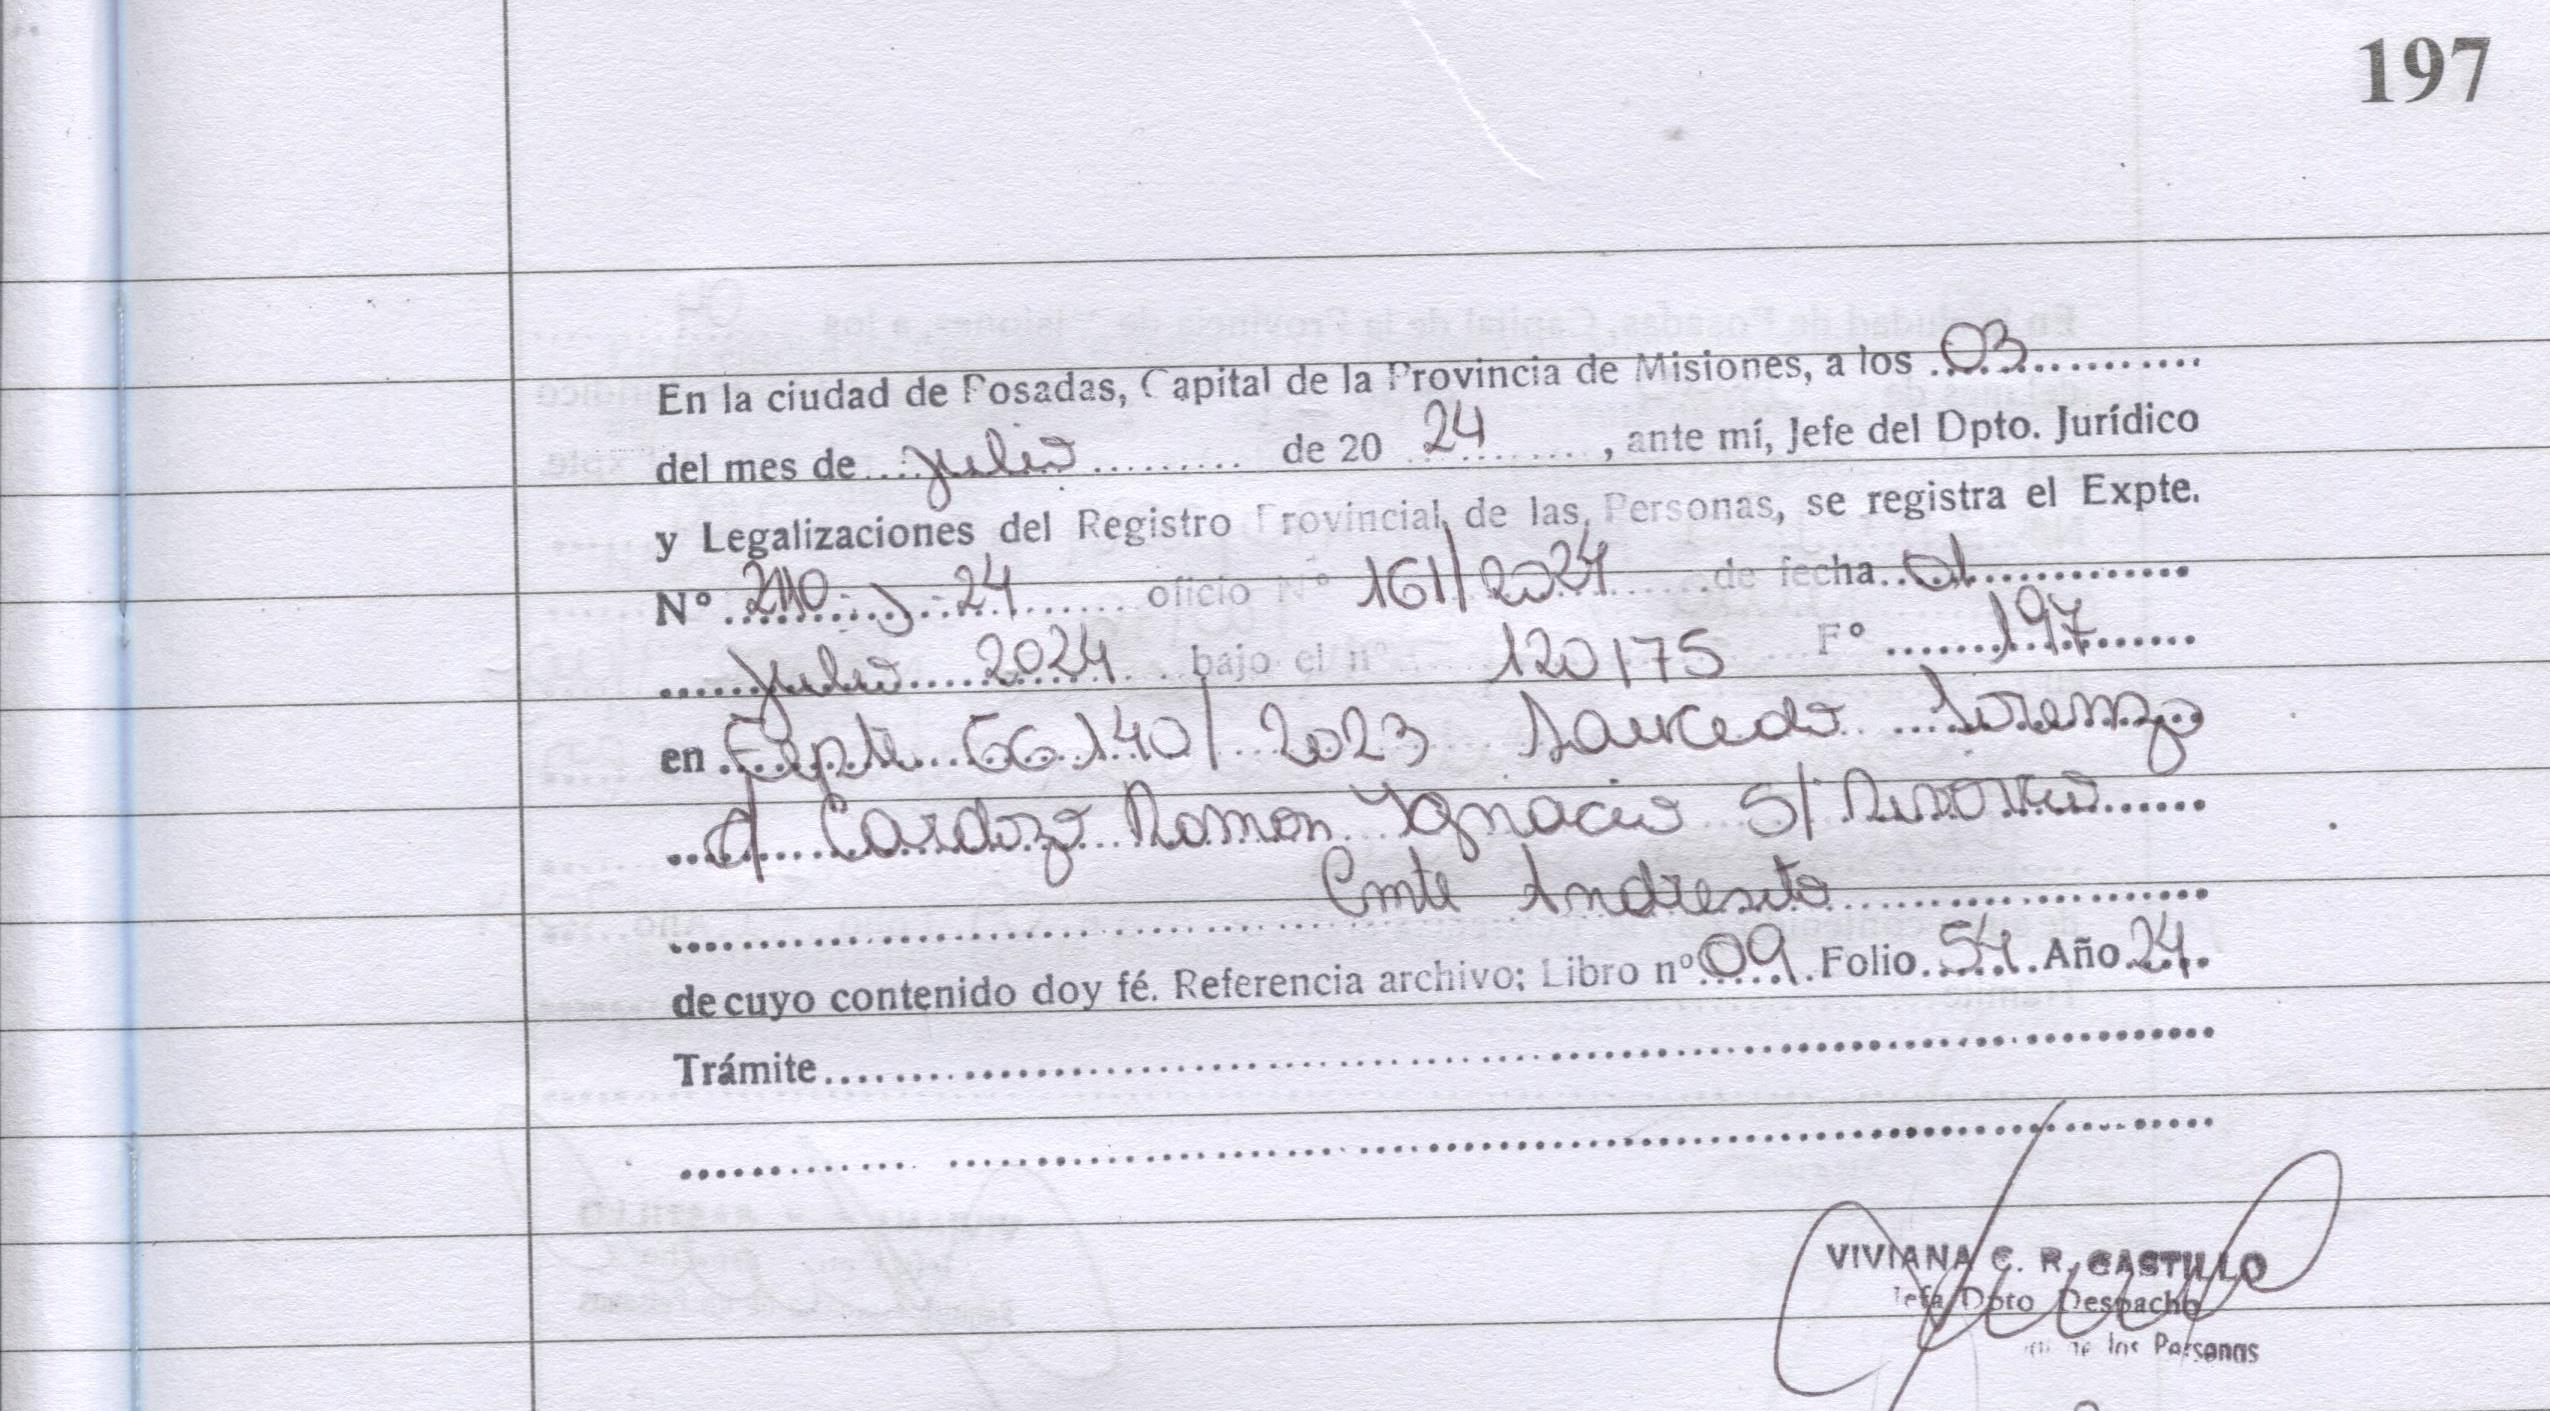 197
En la ciudad de Posadas, Capital de la Provincia de Misiones, a los 03
del mes de julio de 20 24, ante mí, Jefe del Dpto. Jurídico
y Legalizaciones del Registro Provincial de las Personas, se registra el Expte.
Nº J-24 oficio Nº 161/2024 de fecha 01
julio 2024 bajo el nº 120175 Fº 197
en Expte 66140/2023 Saucedo Lorenzo
c/ Cardozo Ramon Ignacio S/ Divorcio
Cmte Andresito
de cuyo contenido doy fé. Referencia archivo; Libro nº 09 Folio 54 Año 24
Trámite
VIVIANA C. R. CASTILLO
Jefa Dpto Despacho
de las Personas